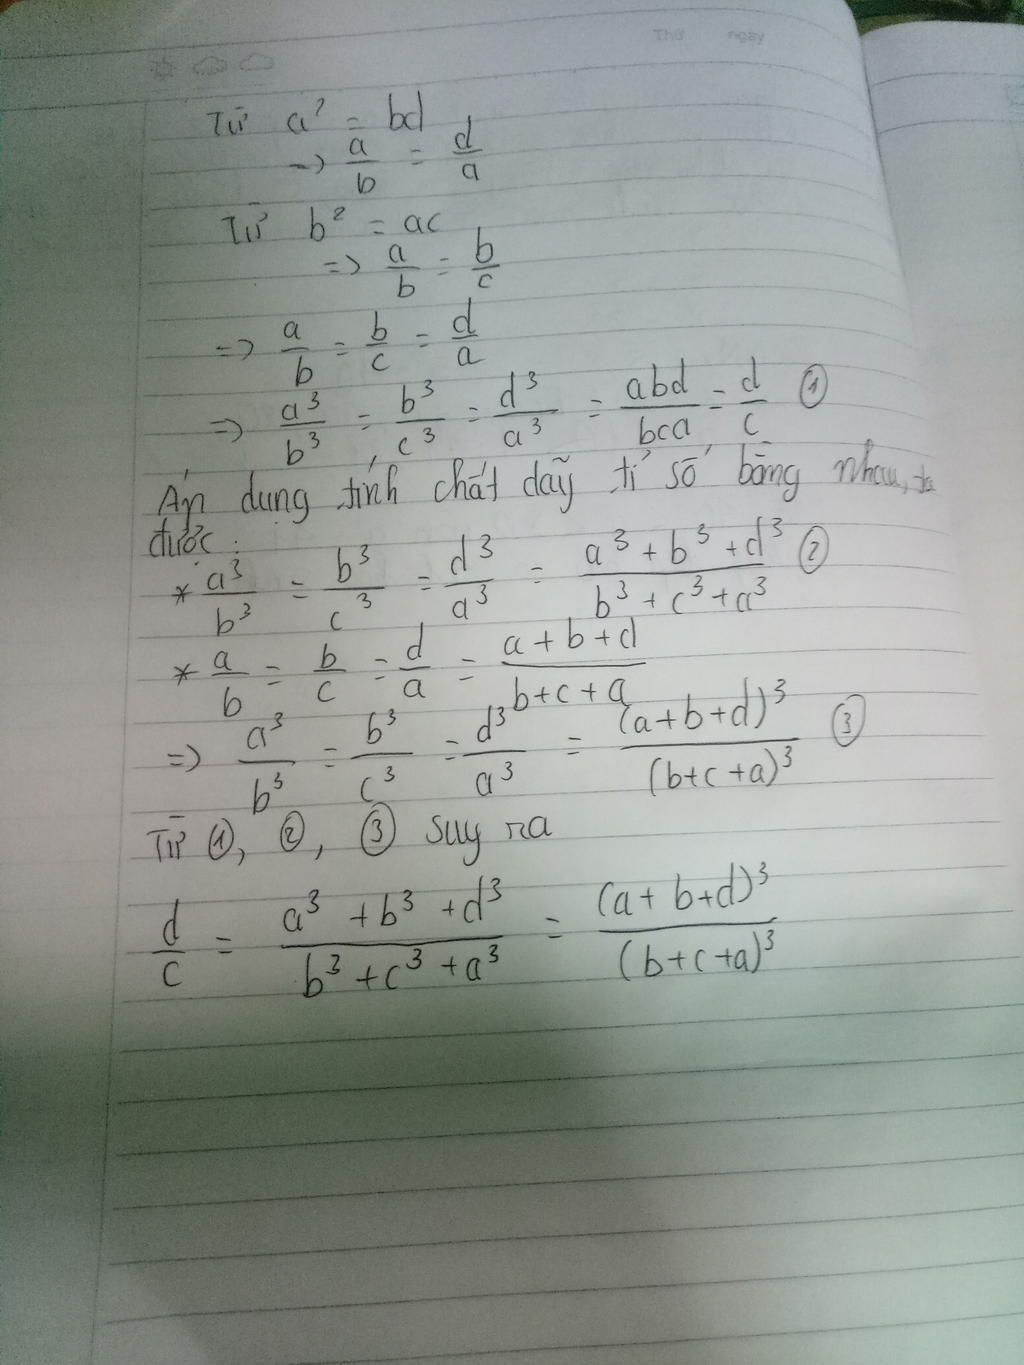 Thứ ngày
Từ a² = bd
=> a/b = d/a
Từ b² = ac
=> a/b = b/c
=> a/b = b/c = d/a
=> a³/b³ = b³/c³ = d³/a³ = abd/bca = d/c ①
Áp dụng tính chất dãy tỉ số bằng nhau, ta
được:
* a³/b³ = b³/c³ = d³/a³ = (a³ + b³ + d³)/(b³ + c³ + a³) ②
* a/b = b/c = d/a = (a + b + d)/(b + c + a)
=> a³/b³ = b³/c³ = d³/a³ = (a+b+d)³/(b+c+a)³ ③
Từ ①, ②, ③ suy ra
d/c = (a³ + b³ + d³)/(b³ + c³ + a³) = (a + b+d)³/(b+c+a)³